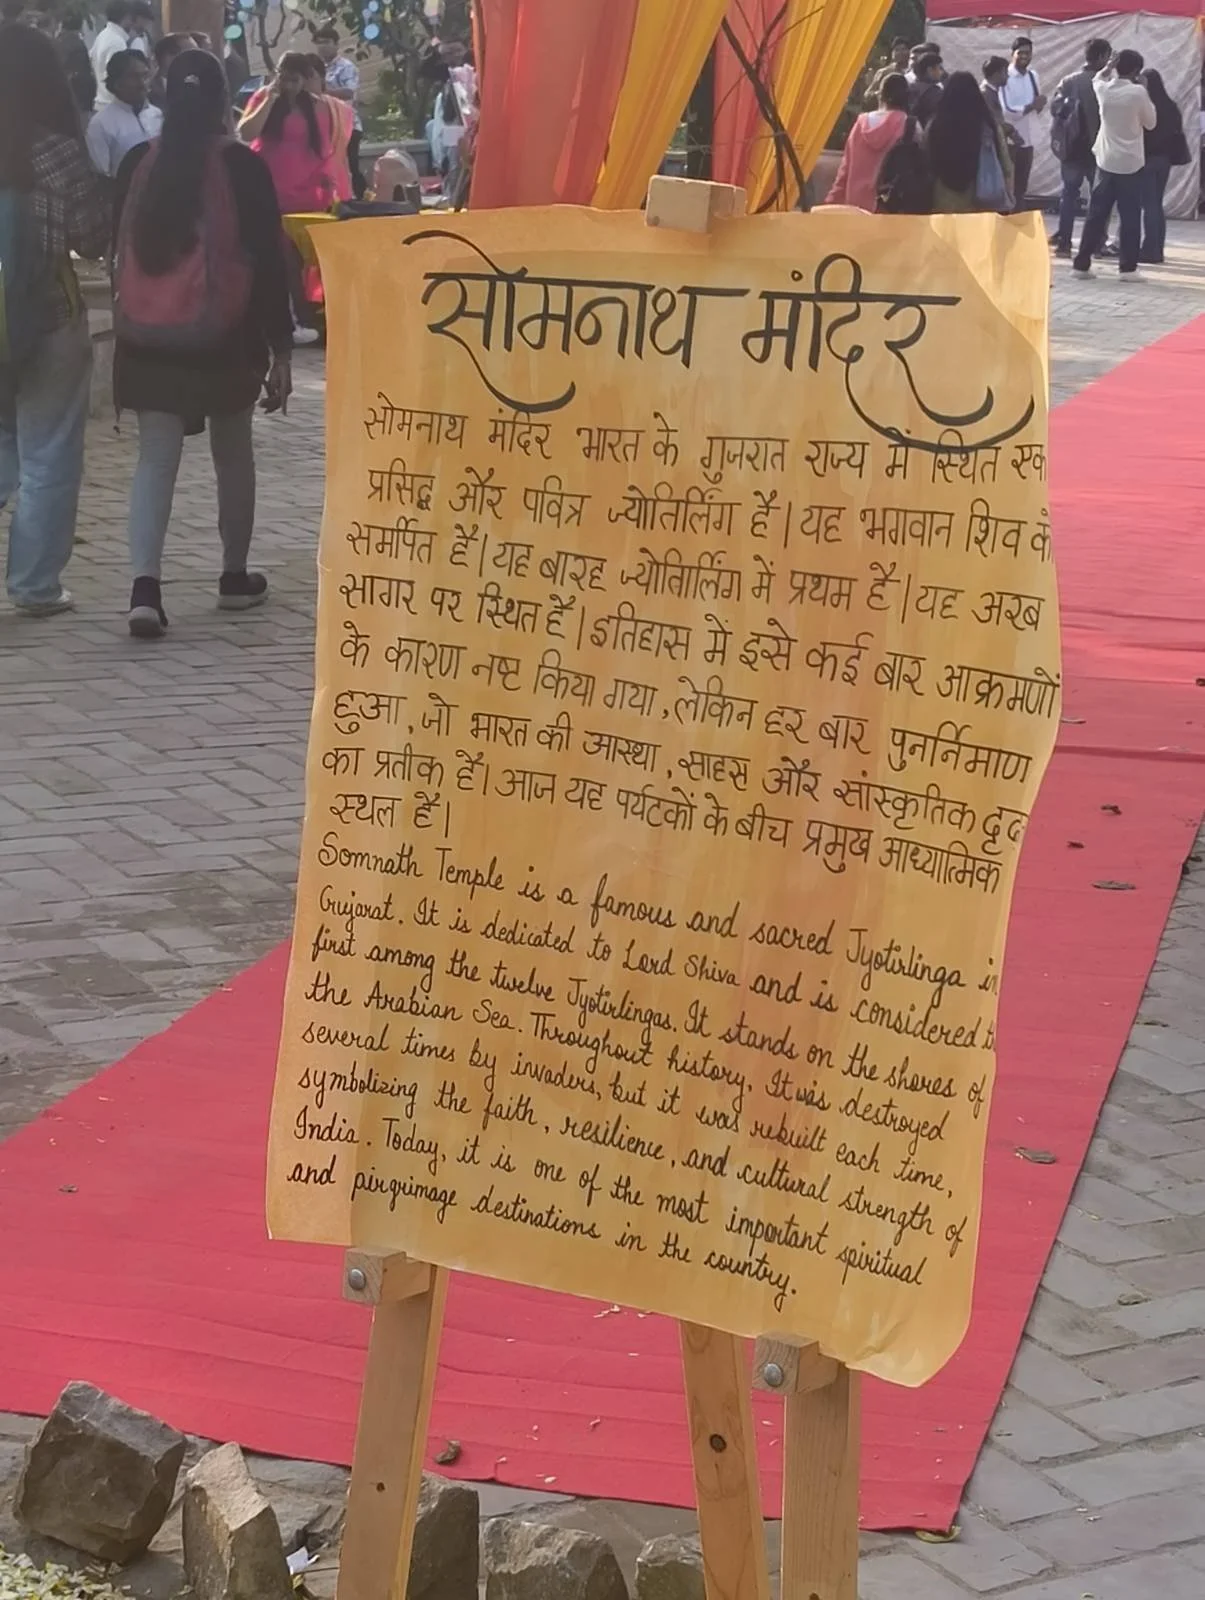 सोमनाथ मंदिर
सोमनाथ मंदिर भारत के गुजरात राज्य में स्थित एक
प्रसिद्ध और पवित्र ज्योतिर्लिंग है। यह भगवान शिव को
समर्पित है। यह बारह ज्योतिर्लिंग में प्रथम है। यह अरब
सागर पर स्थित है। इतिहास में इसे कई बार आक्रमणों
के कारण नष्ट किया गया, लेकिन हर बार पुनर्निमाण
हुआ, जो भारत की आस्था, साहस और सांस्कृतिक
का प्रतीक है। आज यह पर्यटकों के बीच प्रमुख आध्यात्मिक
स्थल है।
Somnath Temple is a famous and sacred Jyotirlinga in
Gujarat. It is dedicated to Lord Shiva and is considered
first among the twelve Jyotirlingas. It stands on the shores of
the Arabian Sea. Throughout history, It was destroyed
several times by invaders, but it was rebuilt each time,
symbolizing the faith, resilience, and cultural strength of
India. Today, it is one of the most important spiritual
and pirgrimage destinations in the country.